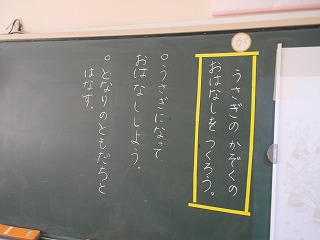 うさぎの かぞくの
おはなしを つくろう。
○うさぎになって
おはなししよう。
○となりのともだちと
はなす。